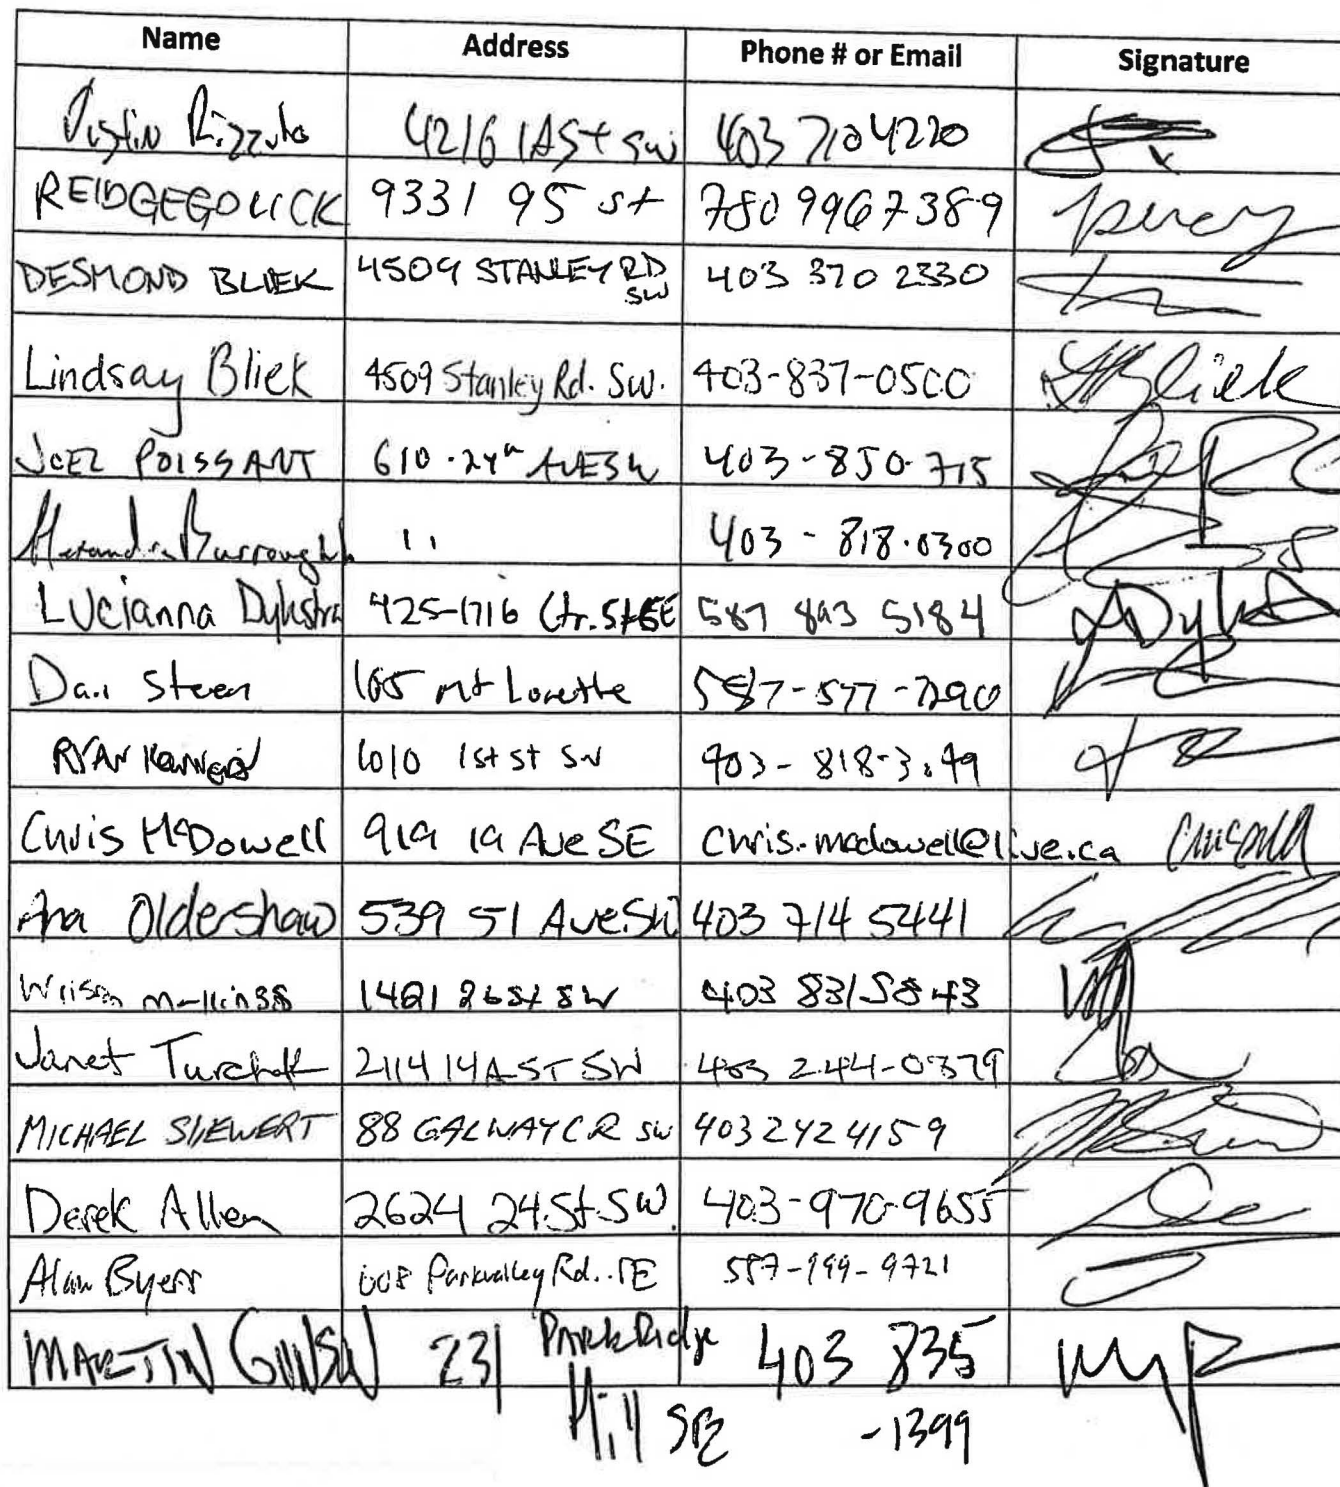 Name Address Phone # or Email Signature
4216 1A St SW 403 710 4220
REIDGEGOLICK 9331 95 st 780 996 7389
DESMOND BLIEK 4509 STANLEY RD SW 403 370 2330
Lindsay Bliek 4509 Stanley Rd. SW. 403-837-0500
JOEL POISSANT 610 - 24th AVE SW 403-850-715
Burrough 11 403-818-0300
Lucianna Dykstra 425-1716 Ctr. St SE 587 893 5184
Dan Steen 165 mt Lorette 587-577-7290
RYAN 1010 1st st SW 403-818-3
Chris McDowell 919 19 Ave SE chris.mcdowell@live.ca
Ana Oldershaw 539 51 Ave.SW 403 714 5441
26 st SW 403 831 5843
Janet 2114 14A ST SW 403 244-0379
MICHAEL SIEWERT 88 GALWAY CR SW 403 242 4159
Derek Allen 2624 24 St. SW. 403-970-9655
Alan Byers Parkvalley Rd. SE 587-999-9721
MARTIN 231 PARK Ridge 403 835
Hill SE -1399